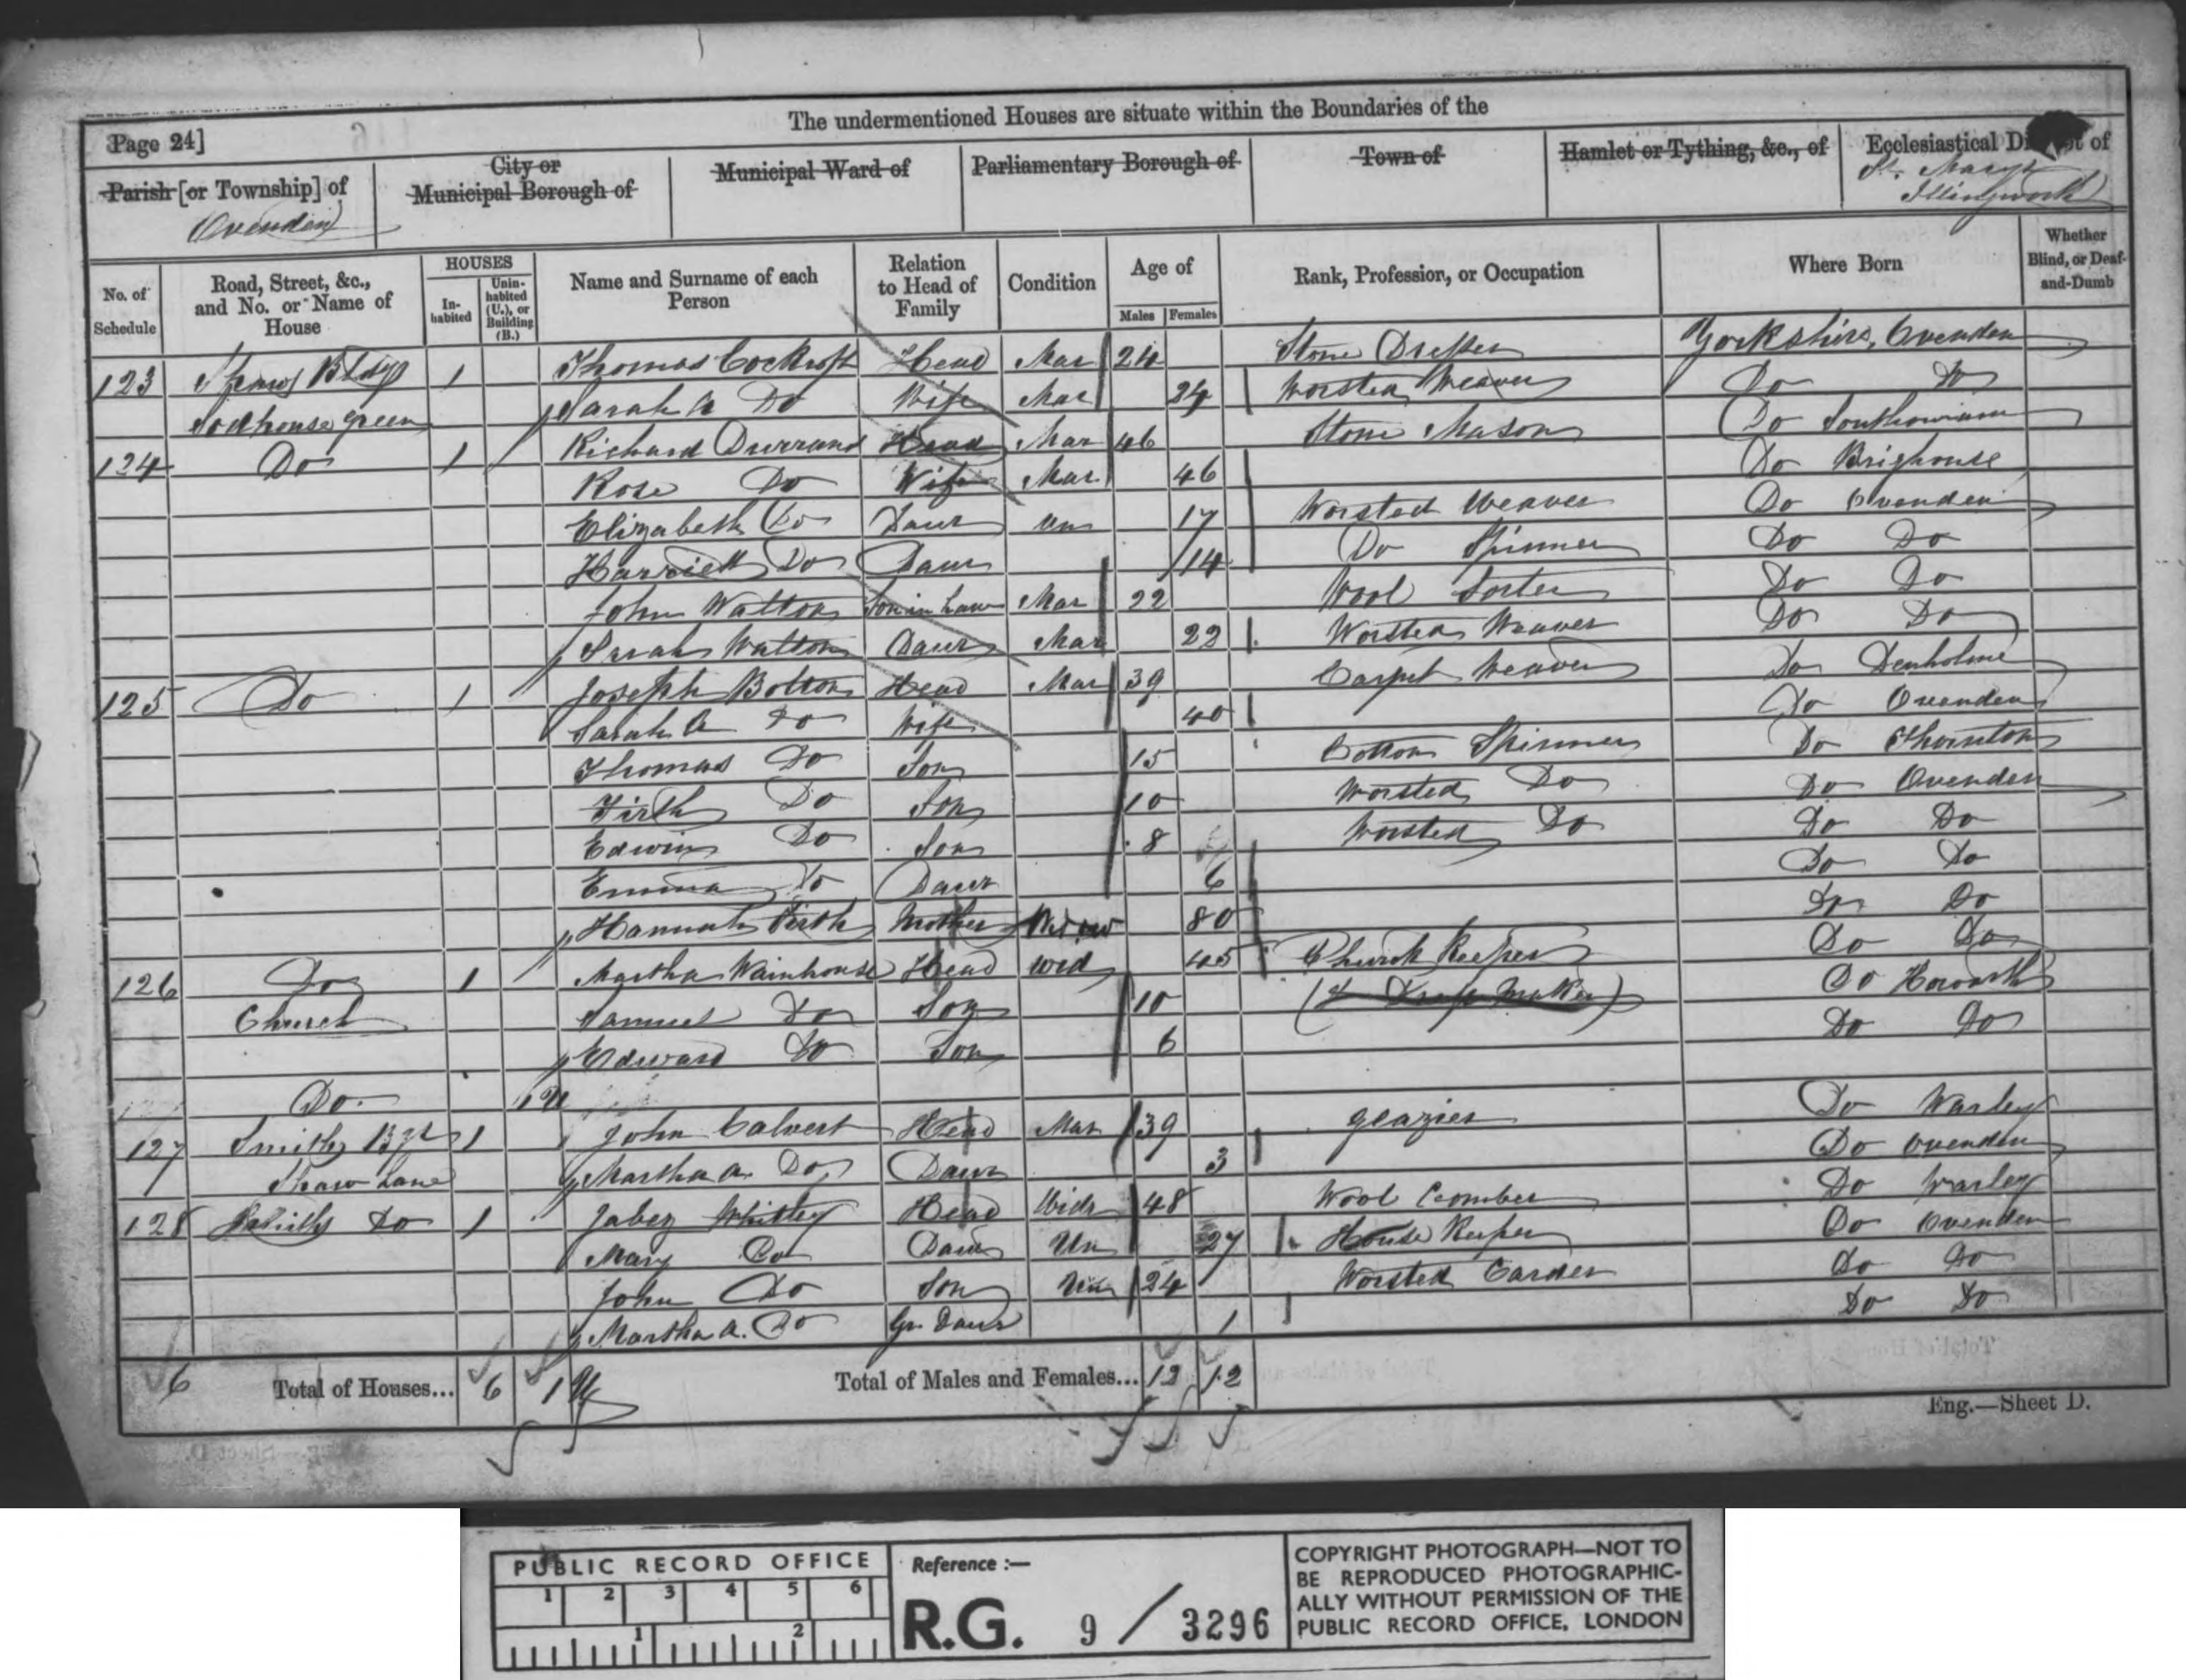 The undermentioned Houses are situate within the Boundaries of the
Page 24]
Parish [or Township] of
Ovenden
City or
Municipal Borough of
Municipal Ward of
Parliamentary Borough of
Town of
Hamlet or Tything, &c., of
Ecclesiastical Di of
St. Marys
Illingworth
No. of Schedule
Road, Street, &c., and No. or Name of House
HOUSES
In-habited
Unin-habited (U.), or Building (B.)
Name and Surname of each Person
Relation to Head of Family
Condition
Age of
Males Females
Rank, Profession, or Occupation
Where Born
Whether Blind, or Deaf-and-Dumb
123 Shaws Bldgs 1 Thomas Cockroft Head Mar 24 Stone Dresser Yorkshire, Ovenden
green Sarah A Do Wife Mar 24 Worsted Weaver Do Do
124 Do 1 Richard Durrand Head Mar 46 Stone Mason Do Southowram
Rose Do Wife Mar 46 Do Brighouse
Elizabeth Do Daur Un 17 Worsted Weaver Do Ovenden
Harriett Do Daur 14 Do Spinner Do Do
John Watton Son in Law Mar 22 Wool Sorter Do Do
Sarah Watton Daur Mar 22 Worsted Weaver Do Do
125 Do 1 Joseph Bolton Head Mar 39 Carpet Weaver Do Denholme
Sarah A Do Wife 40 Do Ovenden
Thomas Do Son 15 Cotton Spinner Do Thornton
Firth Do Son 10 Worsted Do Do Ovenden
Edwin Do Son 8 Worsted Do Do Do
Emma Do Daur 6 Do Do
Hannah Firth Mother Widow 80 Do Do
126 Do 1 Martha Wainhouse Head Wid 45 Church Keeper Do Do
Church Samuel Do Son 10 (& Dress Maker) Do Haworth
Edward Do Son 6 Do Do
Do 1 U
127 Smiths 1 John Calvert Head Mar 39 glazier Do Warley
Shaw Lane Martha A. Do Daur 3 Do Ovenden
128 Do 1 Jabez Whitley Head Widr 48 Wool Comber Do Warley
Mary Do Daur Un 27 House Keeper Do Ovenden
John Do Son Un 24 Worsted Carder Do Do
Martha A. Do Gr. Daur 1 Do Do
6 Total of Houses... 6 1 U Total of Males and Females... 12 12
Eng.—Sheet D.
PUBLIC RECORD OFFICE
1 2 3 4 5 6
1 2
Reference :—
R.G. 9 / 3296
COPYRIGHT PHOTOGRAPH—NOT TO
BE REPRODUCED PHOTOGRAPHIC-
ALLY WITHOUT PERMISSION OF THE
PUBLIC RECORD OFFICE, LONDON